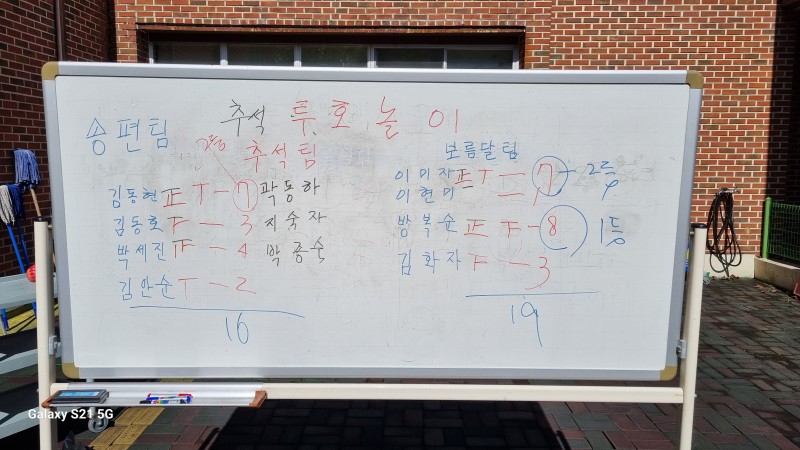 추석 투호 놀이
송편팀
2등
추석팀
보름달팀
김동현 正 T - 7
김동호 F - 3
박세진 正 - 4
김안순 T - 2
16
곽동하
지숙자
박종숙
이미자 正 T - 7 2등
이현미 - 1
방복순 正 F - 8 1등
김화자 F - 3
19
Galaxy S21 5G